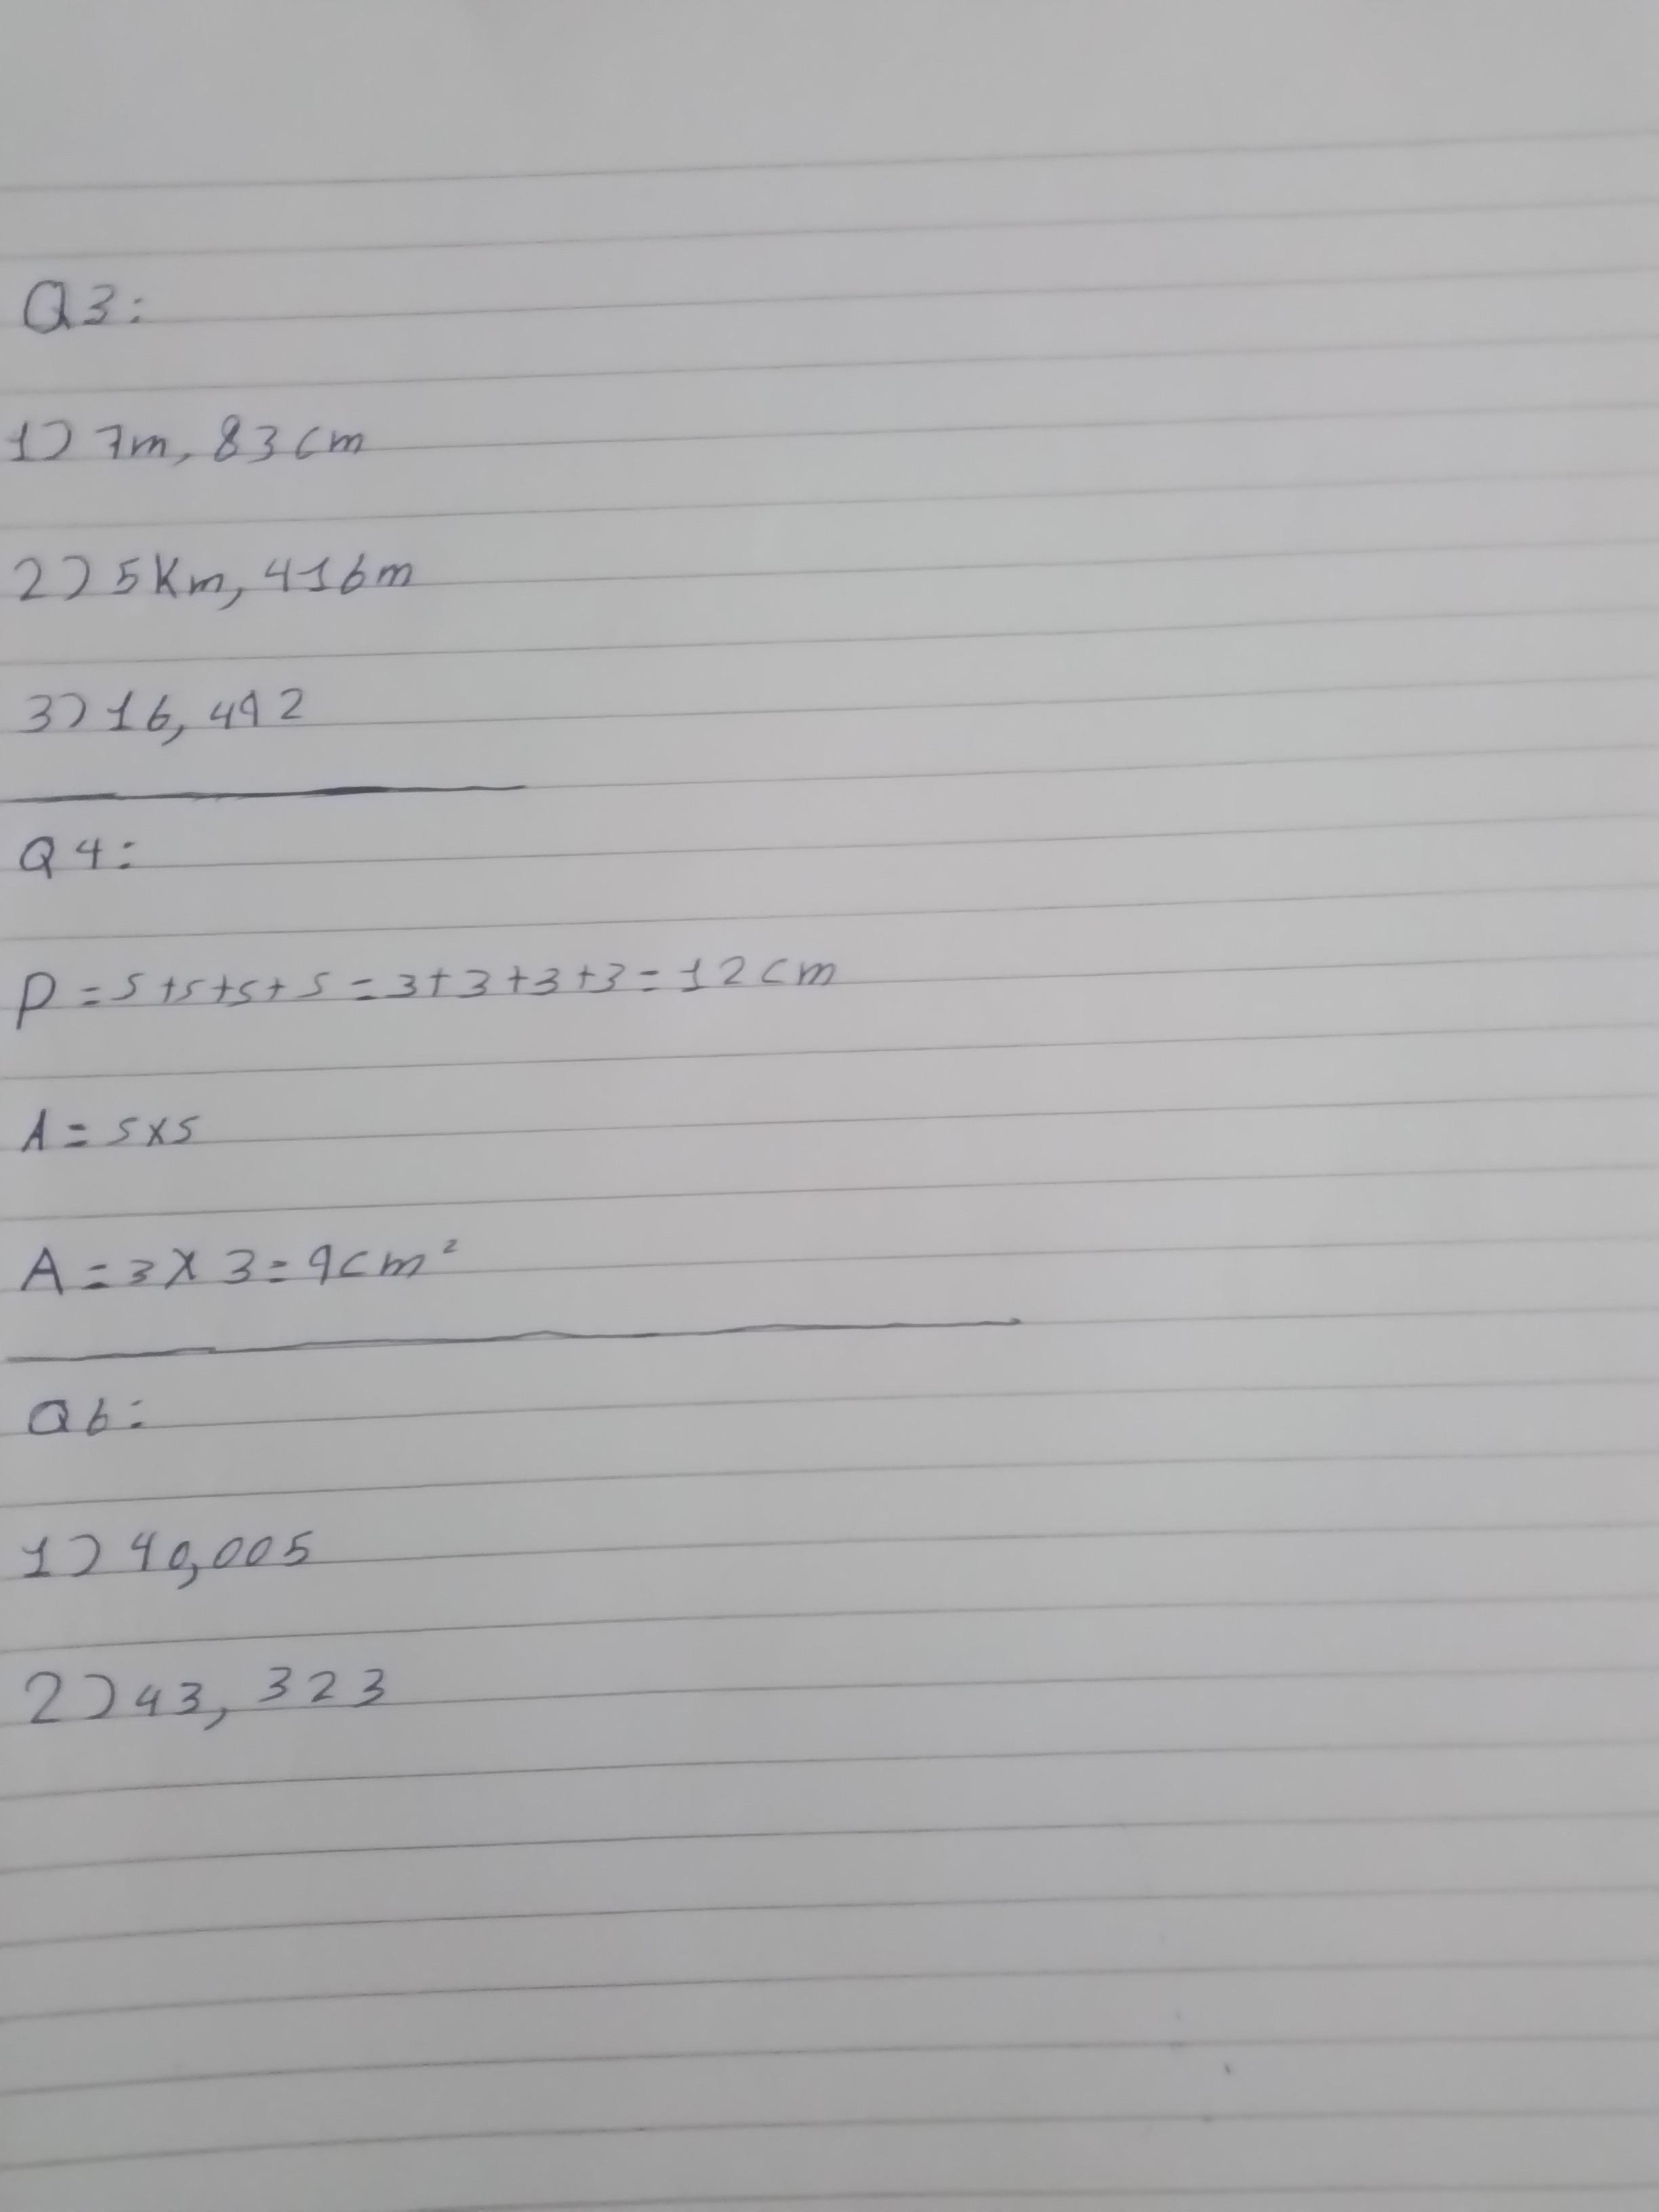 Q3:
1) 7m, 83cm
2) 5Km, 416m
3) 16, 492
Q4:
P = s+s+s+s = 3+3+3+3 = 12cm
A = s×s
A = 3×3 = 9cm²
Q6:
1) 40,005
2) 43, 323